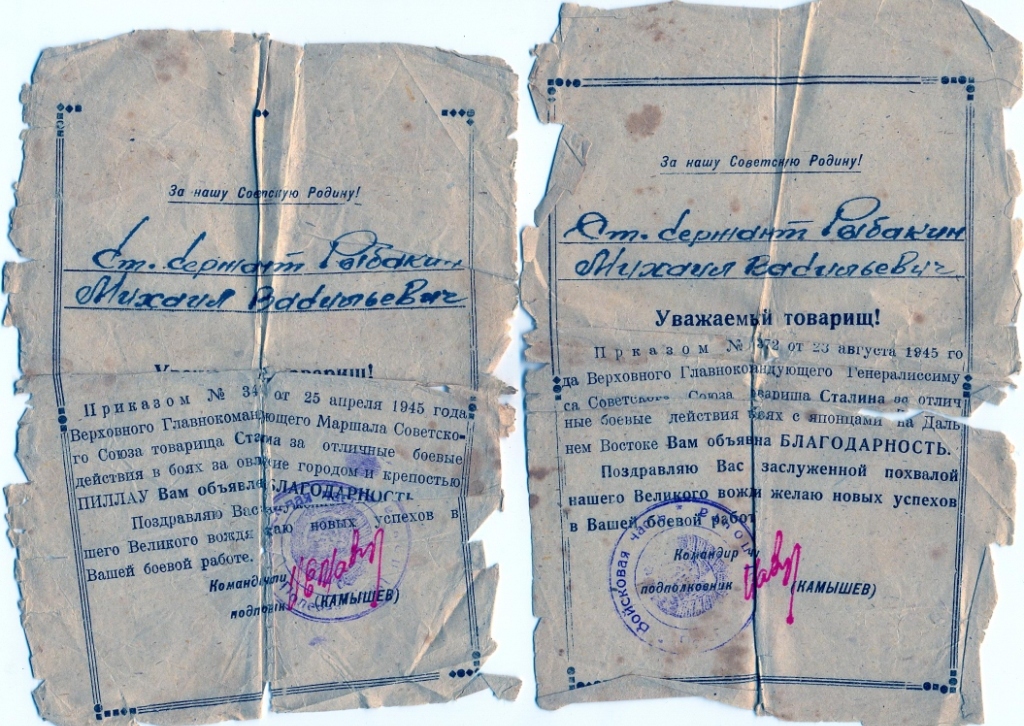 За нашу Советскую Родину!
Ст. сержант Рыбакин
Михаил Васильевич
товарищ!
Приказом № 34 от 25 апреля 1945 года
Верховного Главнокомандующего Маршала Советско-
го Союза товарища Сталина за отличные боевые
действия в боях за овл ние городом и крепостью
ПИЛЛАУ Вам объявле БЛАГОДАРНОСТЬ
Поздравляю Вас
шего Великого вождя аю новых успехов в
Вашей боевой работе.
Команд
подпол
(КАМЫШЕВ)
За нашу Советскую Родину!
Ст. сержант Рыбакин
Михаил Васильевич
Уважаемый товарищ!
Приказом № 372 от 23 августа 1945 го
да Верховного Главноко ндующего Генералиссиму
са Советского Союза товарища Сталина за отлич
ные боевые действия боях с японцами на Даль
нем Востоке Вам объявна БЛАГОДАРНОСТЬ.
Поздравляю Вас заслуженной похвалой
нашего Великого вожи желаю новых успехов
в Вашей боевой работ
Командир ч
подполковник
(КАМЫШЕВ)
Войсковая часть